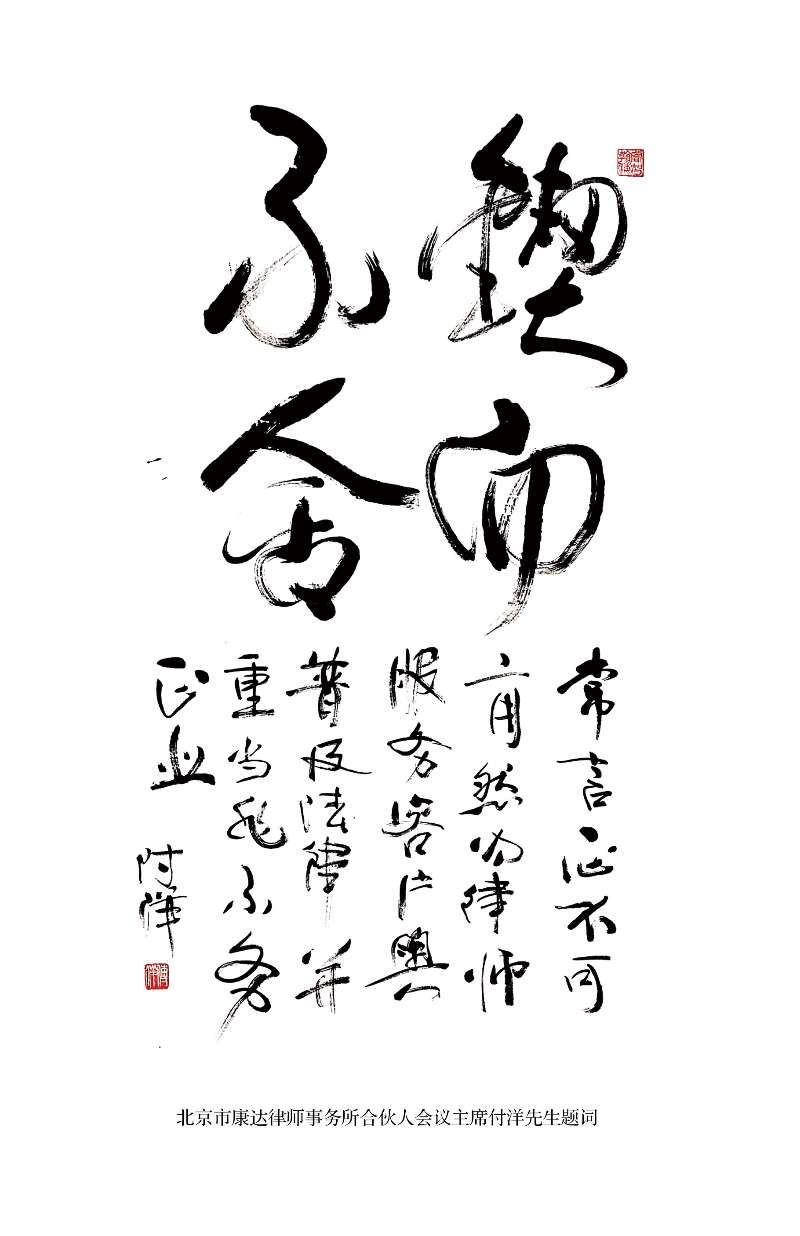 锲而
不舍
常言心不可
二用然为律师
服务客户與
普及法律并
重当非不务
正业
付洋
北京市康达律师事务所合伙人会议主席付洋先生题词